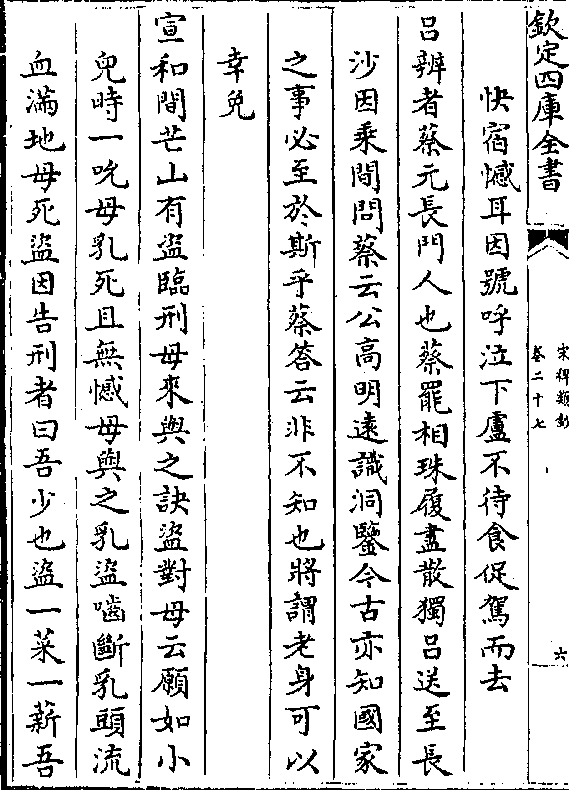 欽定四庫全書
宋稗類鈔
卷二十七
六
快宿憾耳因號呼泣下盧不待食促駕而去
呂辨者蔡元長門人也蔡罷相珠履盡散獨呂送至長
沙因乘間問蔡云公高明遠識洞鑒今古亦知國家
之事必至於斯乎蔡答云非不知也將謂老身可以
幸免
宣和間芒山有盜臨刑母來與之訣盜對母云願如小
兒時一吮母乳死且無憾母與之乳盜嚙斷乳頭流
血滿地母死盜因告刑者曰吾少也盜一菜一薪吾